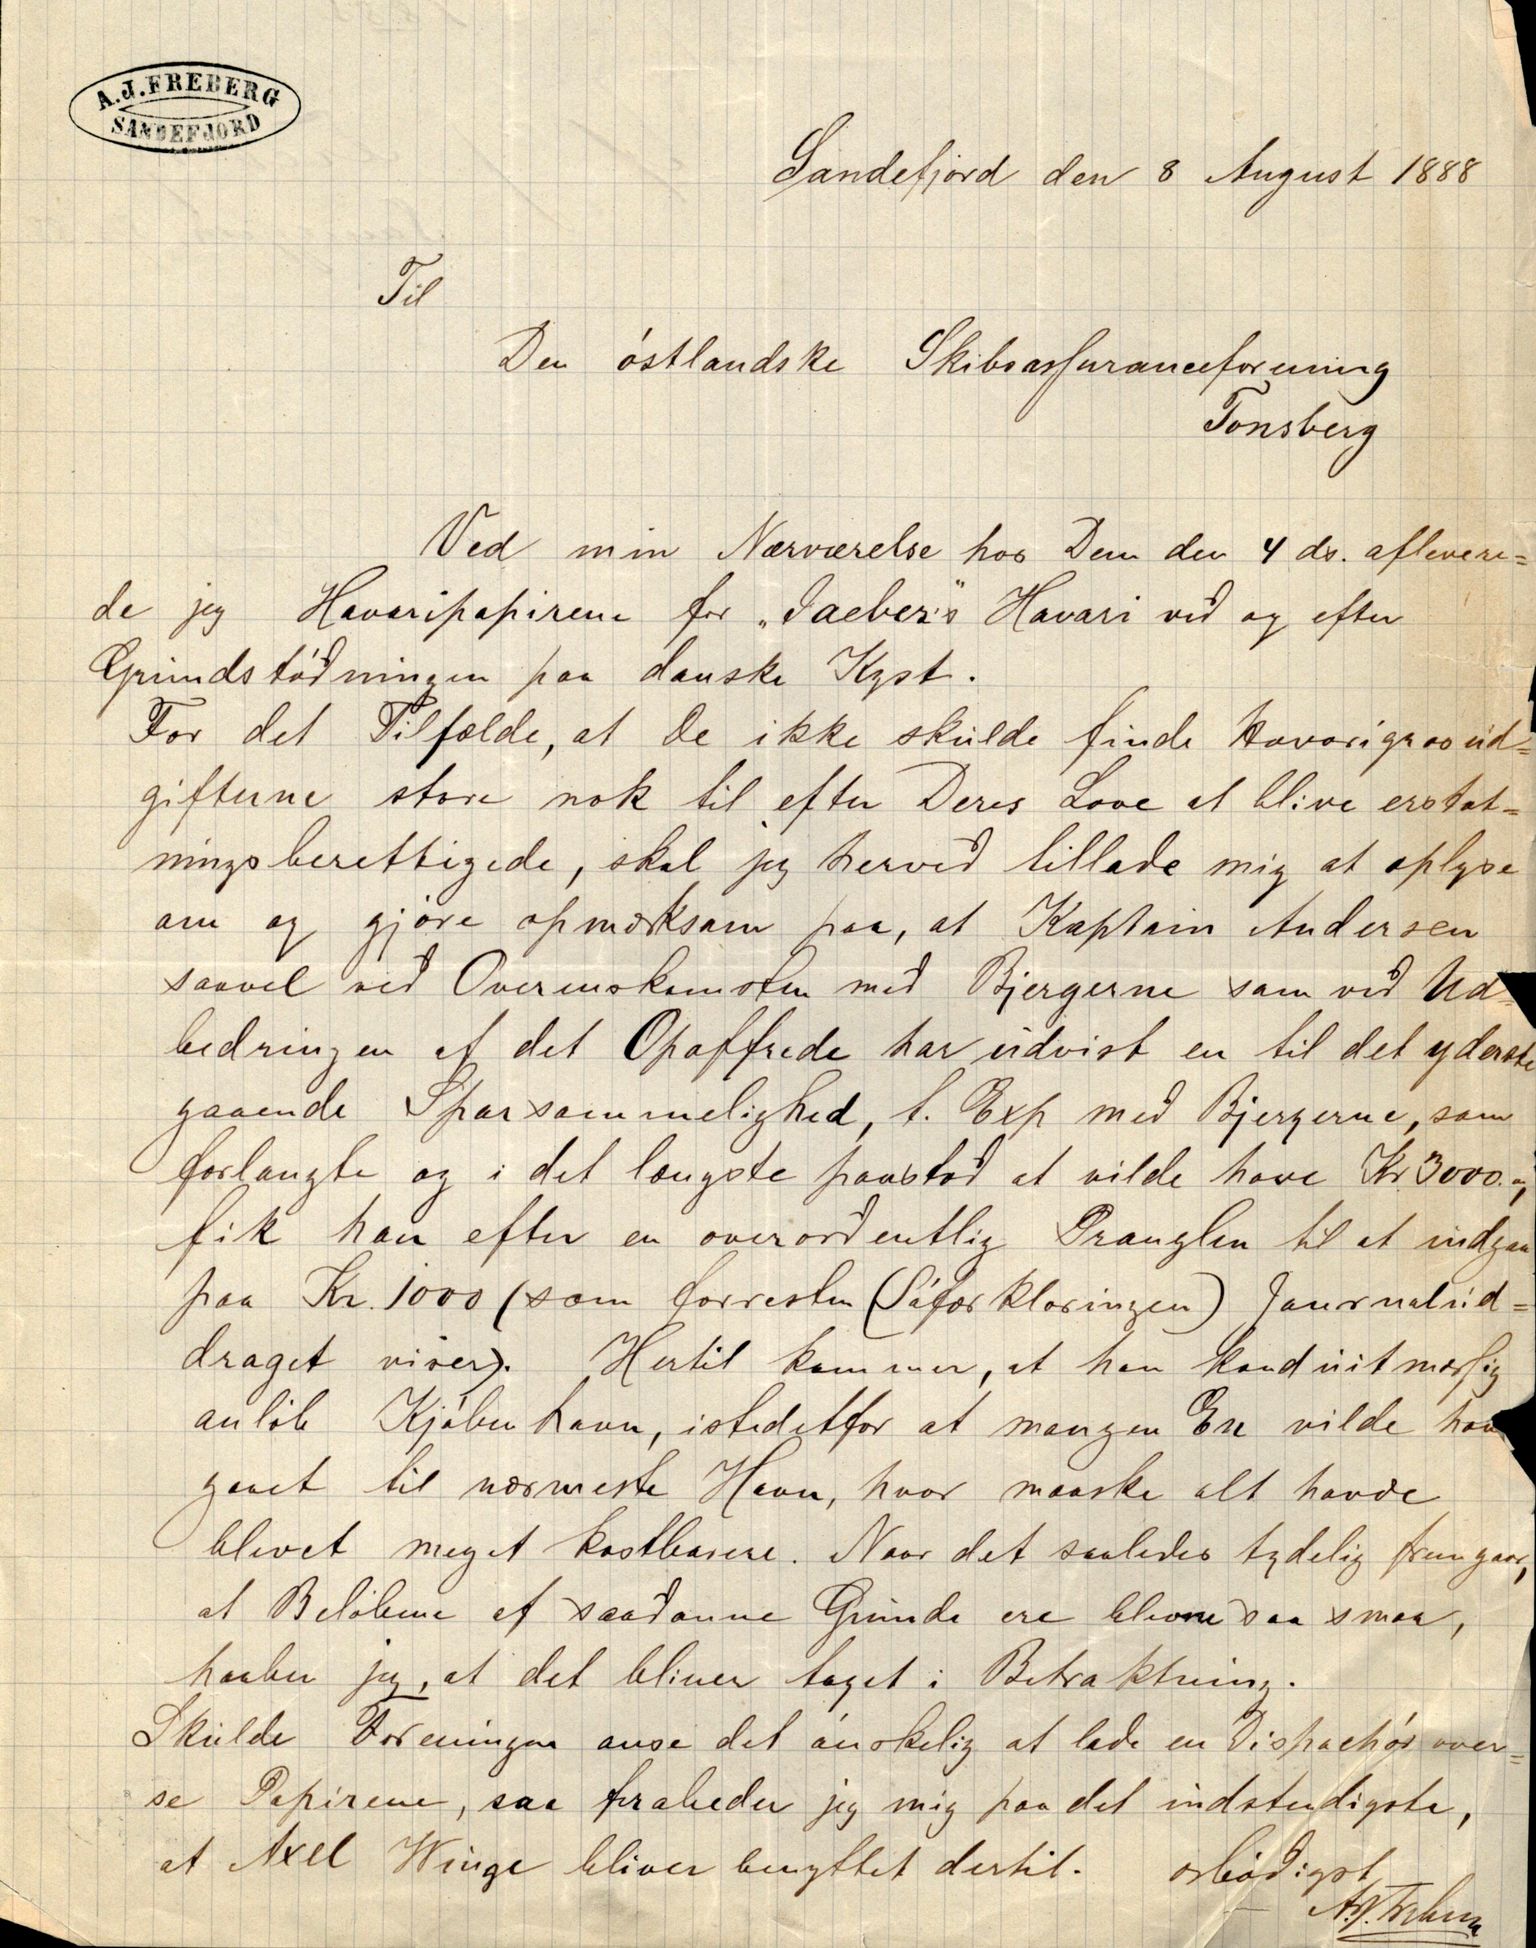 A.J. FREBERG
SANDEFJORD
Sandefjord den 8 August 1888
Til
Den östlandske Skibsassuranceforening
Tønsberg
Ved min Nærværelse hos Dem den 4 ds. aflevere=
de jeg Havaripapirene for „Jaeber's" Havari ved og efter
Grundstödningen paa danske Kyst.
For det Tilfælde, at De ikke skulde finde Havarigrosud=
gifterne store nok til efter Deres Love at blive erstat=
ningsberettigede, skal jeg herved tillade mig at oplyse
om og gjöre opmærksom paa, at Kaptain Andersen
saavel ved Overenskomsten med Bjergerne som ved Ud=
bedringen af det Opoffrede har udvist en til det yderste
gaaende Sparsommelighed, t. Exp med Bjergerne, som
forlangte og i det længste paastod at vilde have Kr 3000. -,
fik han efter en overordentlig Pranglen til at indgaa
paa Kr. 1000 (som forresten (Söforklaringen) Journalud=
draget viser). Hertil kommer, at han konduitmæssig
anlöb Kjöbenhavn, istedetfor at mangen En vilde have
gaaet til nærmeste Havn, hvor maaske alt havde
blevet meget kostbarere. Naar det saaledes tydelig fremgaar,
at Belöbene af saadanne Grunde ere blevne saa smaa,
haaber jeg, at det bliver taget i Betraktning.
Skulde Foreningen anse det önskelig at lade en Dispachör over=
se Papirene, saa frabeder jeg mig paa det indstendigste,
at Axel Winge bliver benyttet dertil. ærbödigst
A.J. Freberg